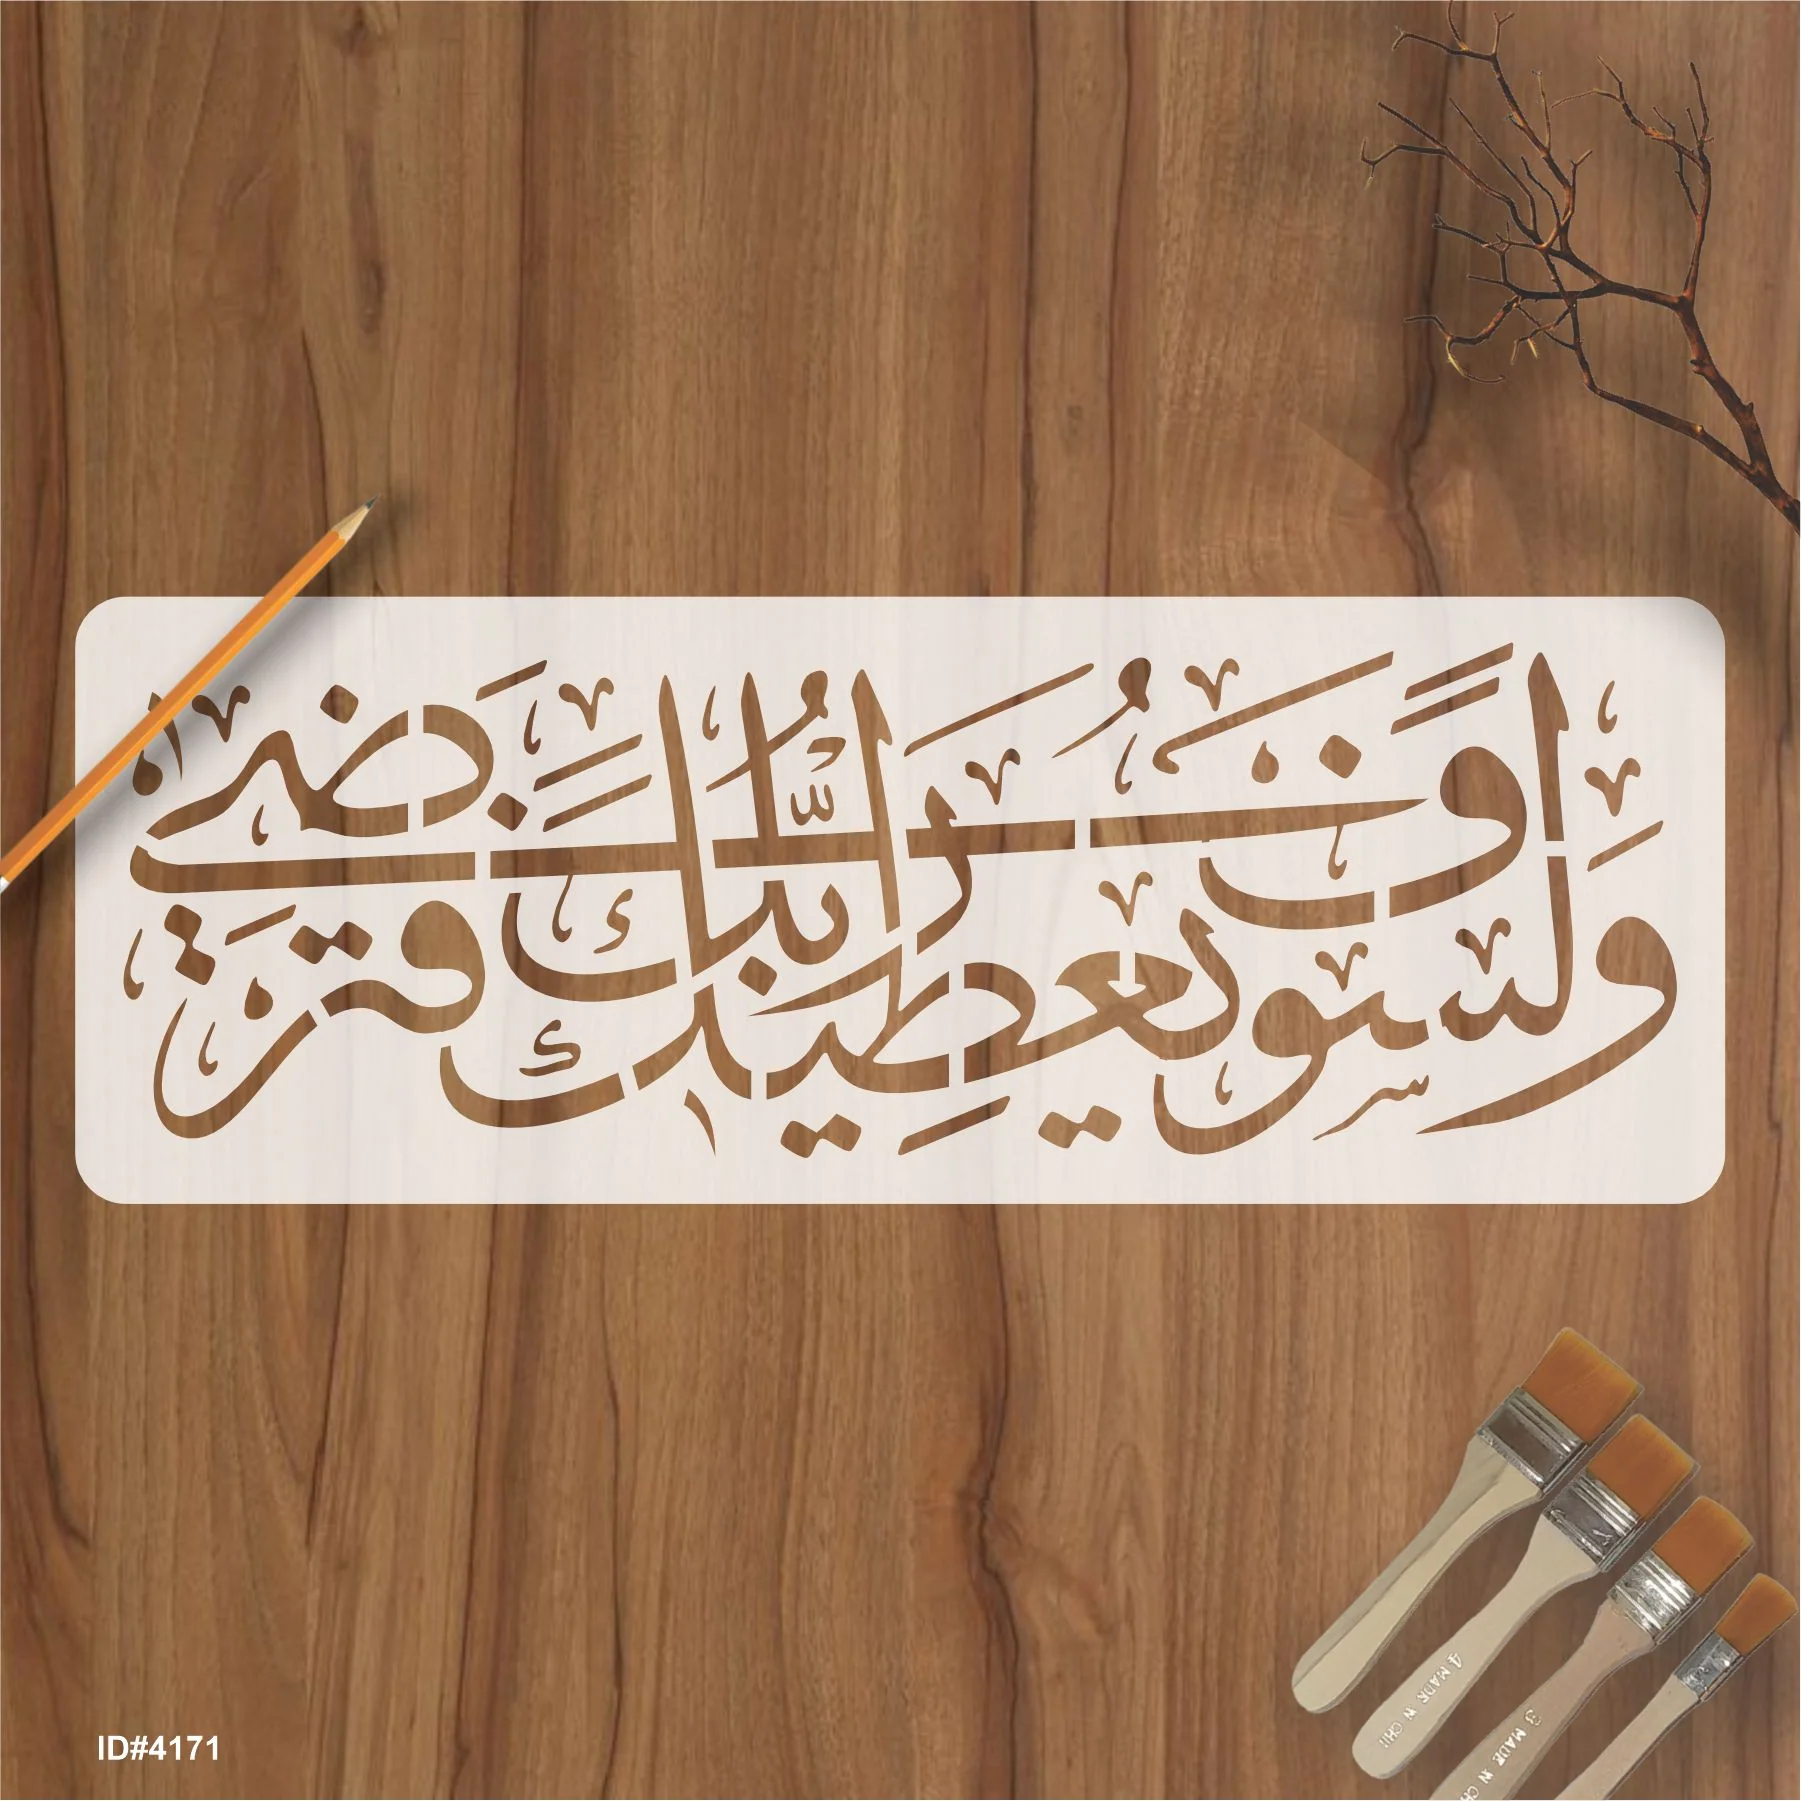 وَلَسَوْفَ يُعْطِيكَ رَبُّكَ فَتَرْضَىٰ
ID#4171
4 MADE IN CHI
3 MADE IN CH